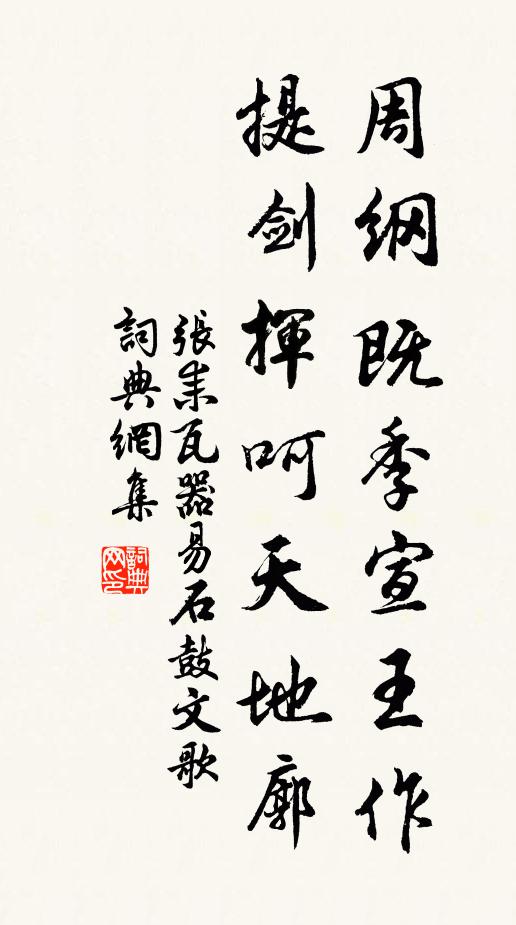 周纲既季宣王作
提剑揮呵天地廓
張耒瓦器易石鼓文歌
詞典網集
詞典网印